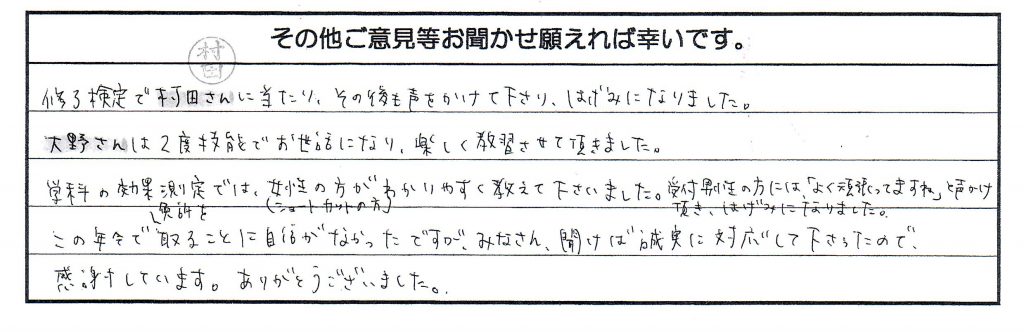 その他ご意見等お聞かせ願えれば幸いです。
村田
修了検定で村田さんに当たり、その後も声をかけて下さり、はげみになりました。
大野さんは2度技能でお世話になり、楽しく教習させて頂きました。
学科の効果測定では、女性の方がわかりやすく教えて下さいました。受付男性の方には、「よく頑張ってますね」と声かけ
(ショートカットの方)
頂き、はげみになりました。
免許を
この年令で取ることに自信がなかったですが、みなさん、聞けば誠実に対応して下さったので、
感謝しています。ありがとうございました。